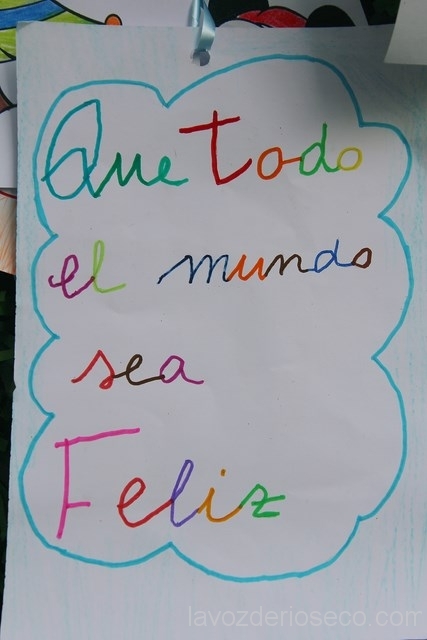 Que Todo
el mundo
sea
Feliz
lavozderioseco.com